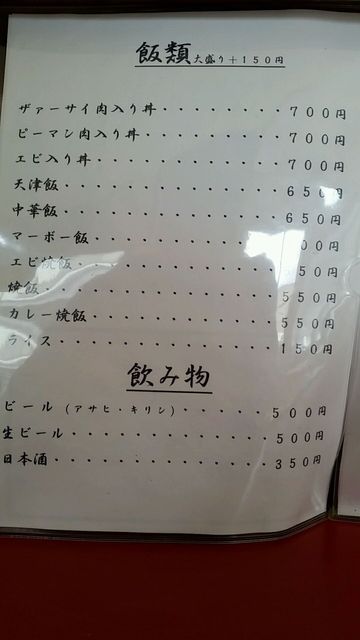 飯類大盛り＋１５０円
ザァーサイ肉入り丼・・・・・・・・７００円
ピーマン肉入り丼・・・・・・・・・７００円
エビ入り丼・・・・・・・・・・・・７００円
天津飯・・・・・・・・・・・・・・６５０円
中華飯・・・・・・・・・・・・・・６５０円
マーボー飯・・・・・・・・・・００円
エビ焼飯・・・・・・・・・・・５０円
焼飯・・・・・・・・・・・・・・・５５０円
カレー焼飯・・・・・・・・・・・・５５０円
ライス・・・・・・・・・・・・・・１５０円
飲み物
ビール（アサヒ・キリン）・・・・・・５００円
生ビール・・・・・・・・・・・・・５００円
日本酒・・・・・・・・・・・・・・３５０円